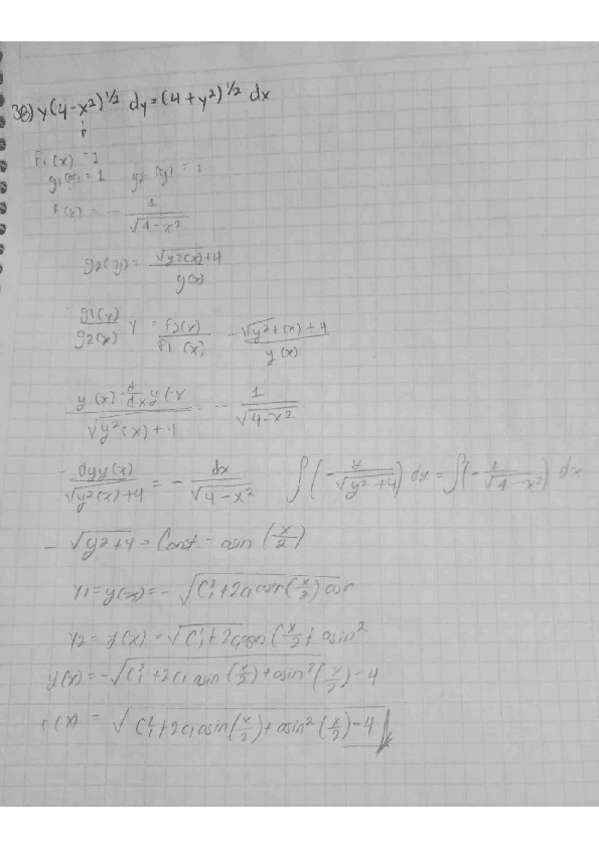 30) y(4-x²)^½ dy = (4+y²)^½ dx
f₁(x) = 1
g₁(x) = 1 g₂(y) = 1
f(x) = - 1/√(4-x²)
g₂(y) = √(y²(x)+4) / y(x)
g₁(y)/g₂(x) y = f₂(x)/f₁(x) - √(y²+(x)+4) / y(x)
y(x) · d/dx y(x / √(y²(x)+4) = - 1/√(4-x²)
- dyy(x)/√(y²(x)+4) = - dx/√(4-x²) ∫(- y/√(y²+4)) dy = ∫(- 1/√(4-x²)) dx
- √(y²+4) = Const - asin (x/2)
y₁ = y(x) = - √(C₁² + 2C₁ asin(x/2)
y₂ = y(x) = √(C₁² + 2C₁ asin (x/2 + asin²
y(x) = - √(C₁² + 2C₁ asin (x/2) + asin² (x/2) - 4
y(x) = √(C₁² + 2C₁ asin (x/2) + asin² (x/2) - 4